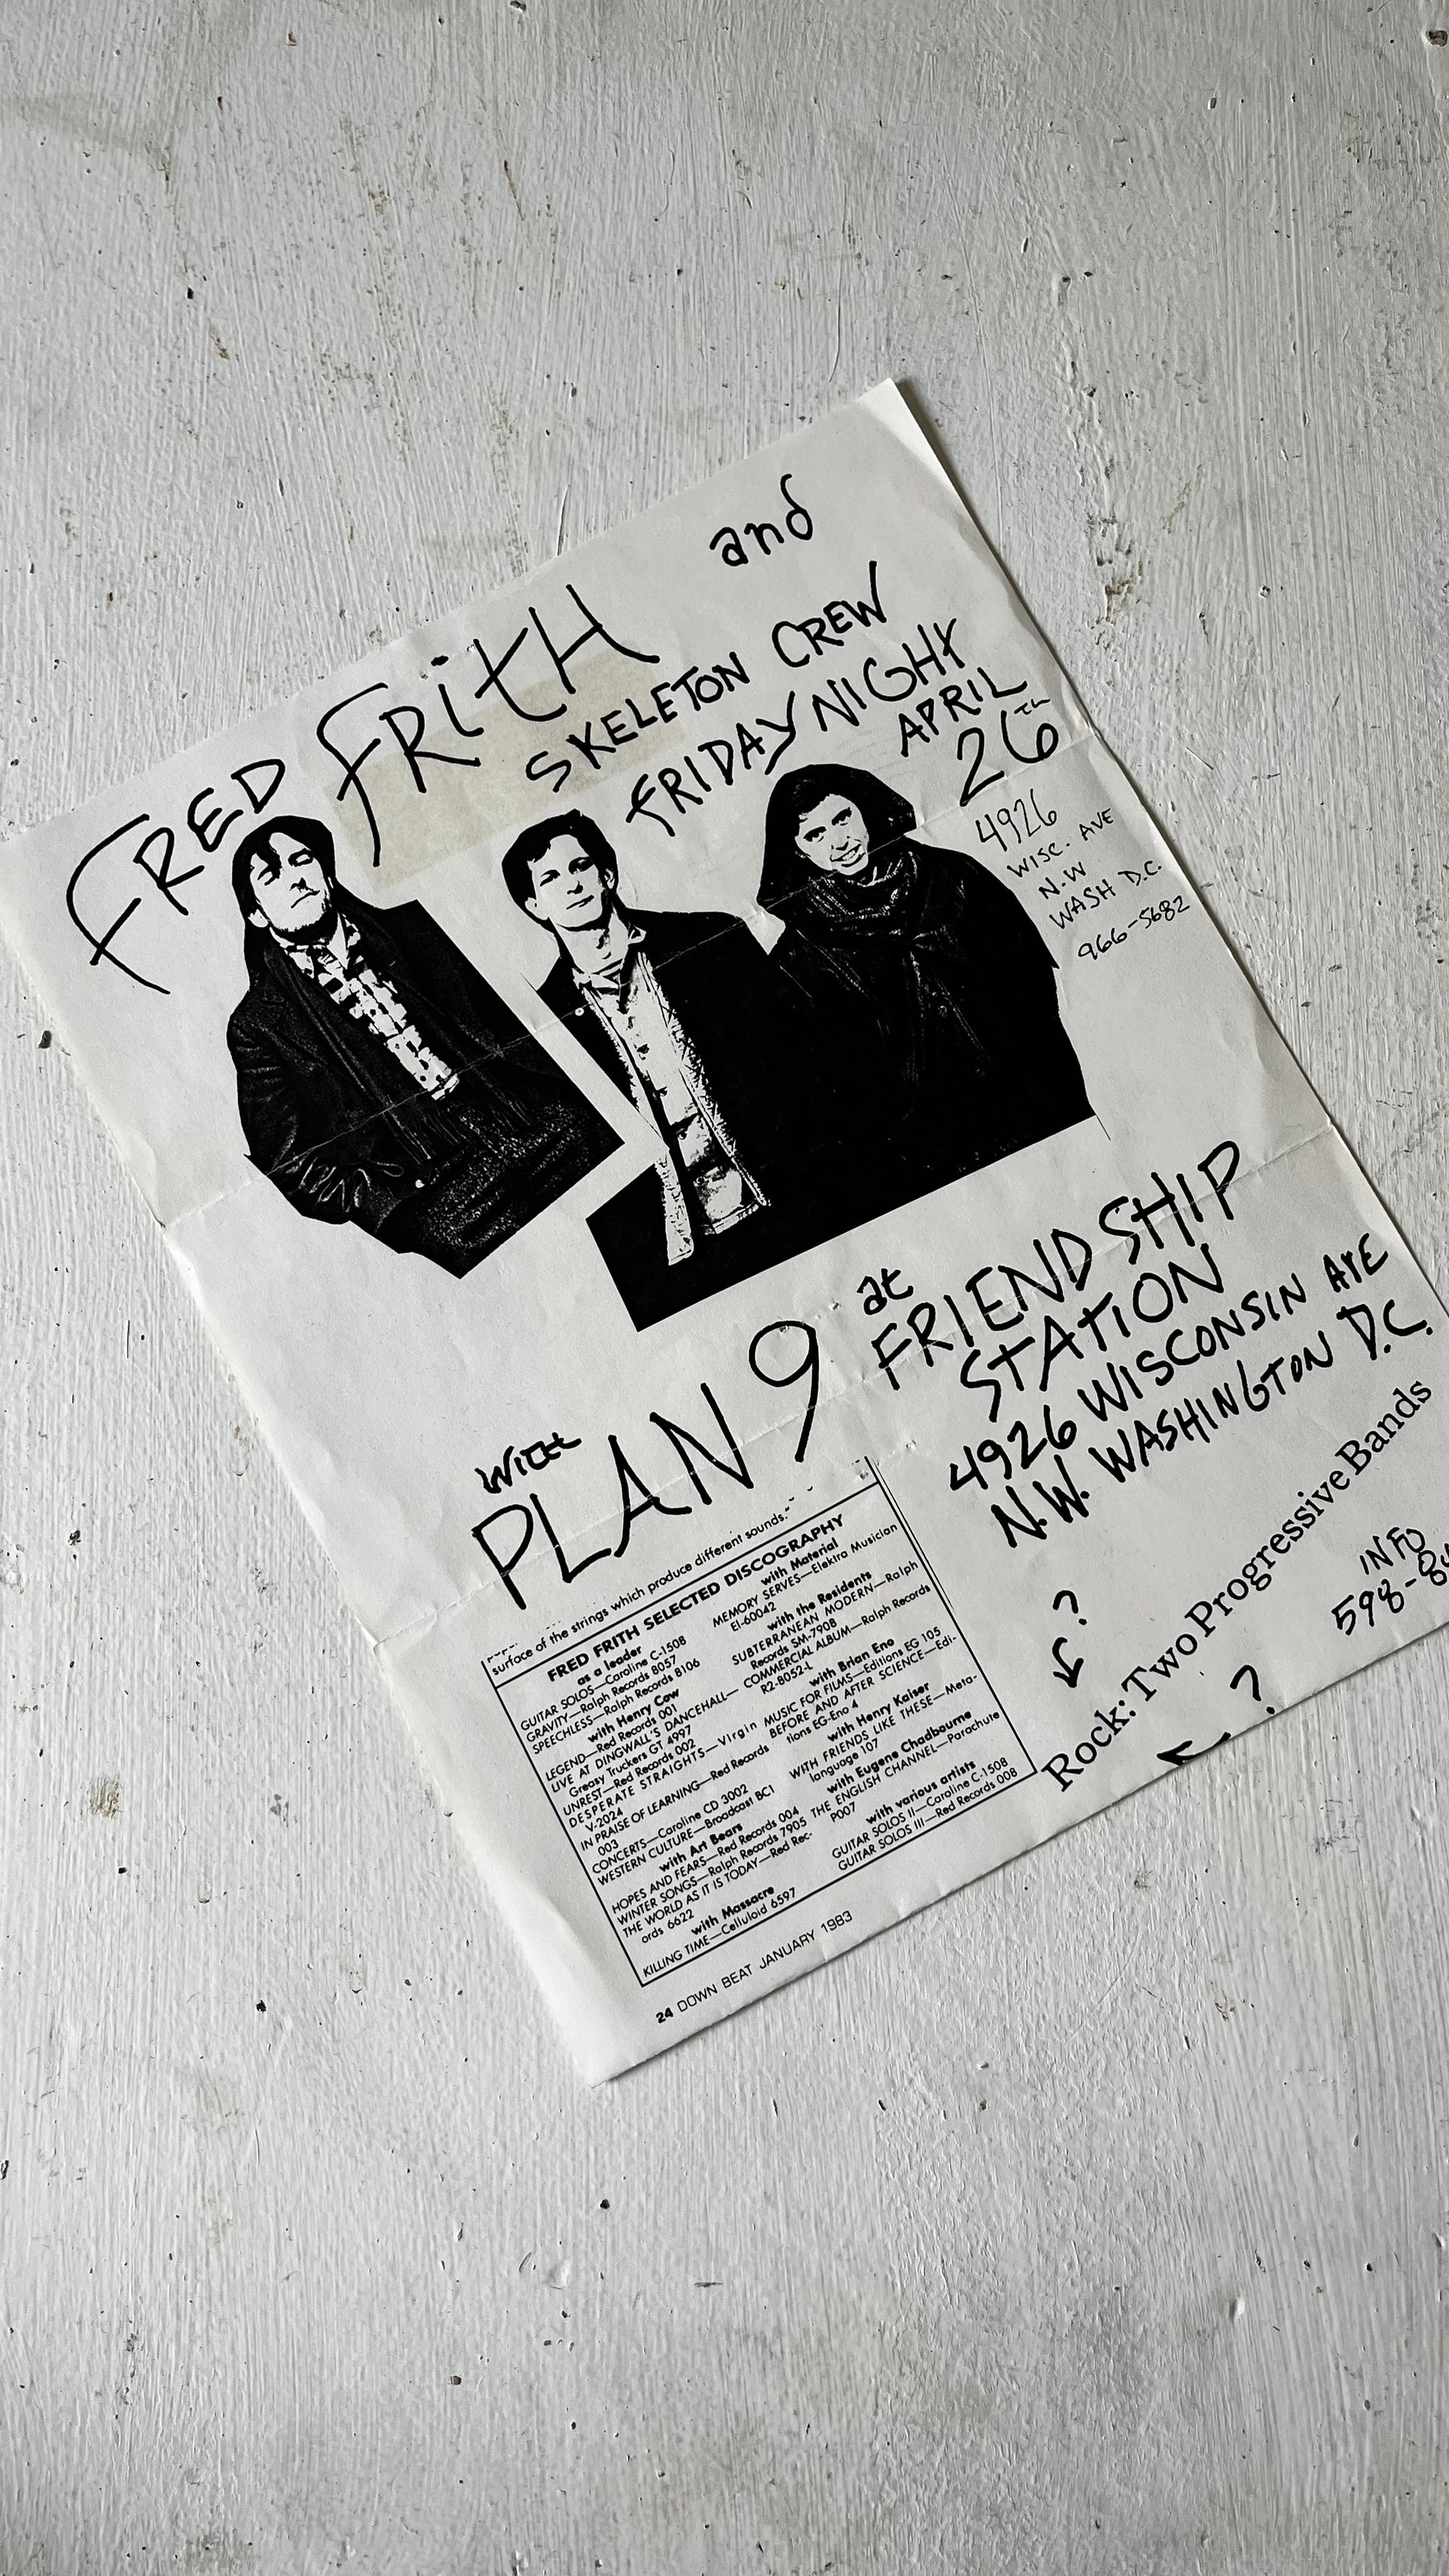 FRED FRITH and
SKELETON CREW
FRIDAY NIGHT
APRIL
26TH
4926
WISC. AVE
N.W
WASH D.C.
966-5682
WITH
PLAN 9
at
FRIENDSHIP
STATION
4926 WISCONSIN AVE
N.W. WASHINGTON D.C.
?
Rock: Two Progressive Bands
?
INFO
598-8
surface of the strings which produce different sounds.
FRED FRITH SELECTED DISCOGRAPHY
as a leader
GUITAR SOLOS—Caroline C-1508
GRAVITY—Ralph Records 8057
SPEECHLESS—Ralph Records 8106
with Henry Cow
LEGEND—Red Records 001
LIVE AT DINGWALL'S DANCEHALL—
Greasy Truckers GT 4997
UNREST—Red Records 002
DESPERATE STRAIGHTS—Virgin
V-2024
IN PRAISE OF LEARNING—Red Records
003
CONCERTS—Caroline CD 3002
WESTERN CULTURE—Broadcast BC1
with Art Bears
HOPES AND FEARS—Red Records 004
WINTER SONGS—Ralph Records 7905
THE WORLD AS IT IS TODAY—Red Rec-
ords 6622
with Massacre
KILLING TIME—Celluloid 6597
with Material
MEMORY SERVES—Elektra Musician
El-60042
with the Residents
SUBTERRANEAN MODERN—Ralph
Records SM-7908
COMMERCIAL ALBUM—Ralph Records
R2-8052-L
with Brian Eno
MUSIC FOR FILMS—Editions EG 105
BEFORE AND AFTER SCIENCE—Edi-
tions EG-Eno 4
with Henry Kaiser
WITH FRIENDS LIKE THESE—Meta-
language 107
with Eugene Chadbourne
THE ENGLISH CHANNEL—Parachute
P007
with various artists
GUITAR SOLOS II—Caroline C-1508
GUITAR SOLOS III—Red Records 008
24 DOWN BEAT JANUARY 1983